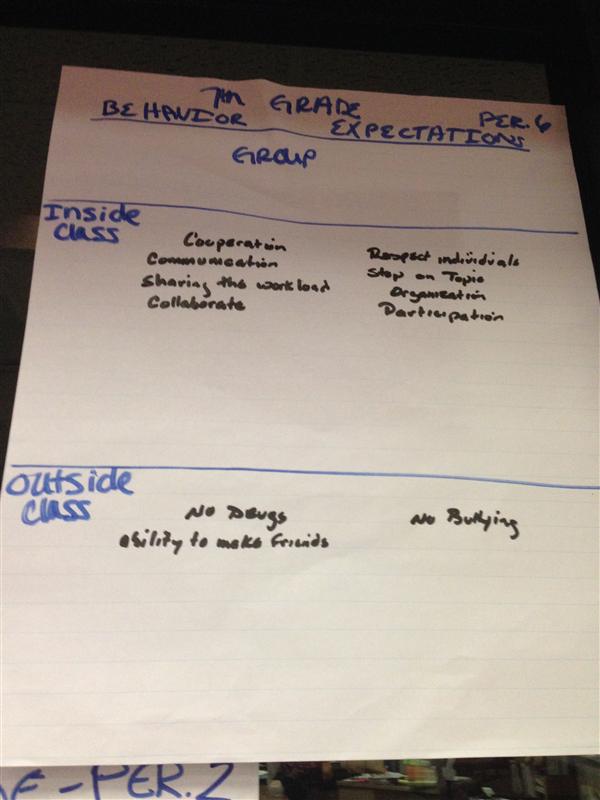 7th GRADE
BEHAVIOR EXPECTATIONS PER. 6
GROUP
Inside Class
Cooperation
Communication
Sharing the workload
Collaborate
Respect individuals
Stop on Topic
Organization
Participation
Outside Class
No Drugs
ability to make friends
No Bullying
PER. 2